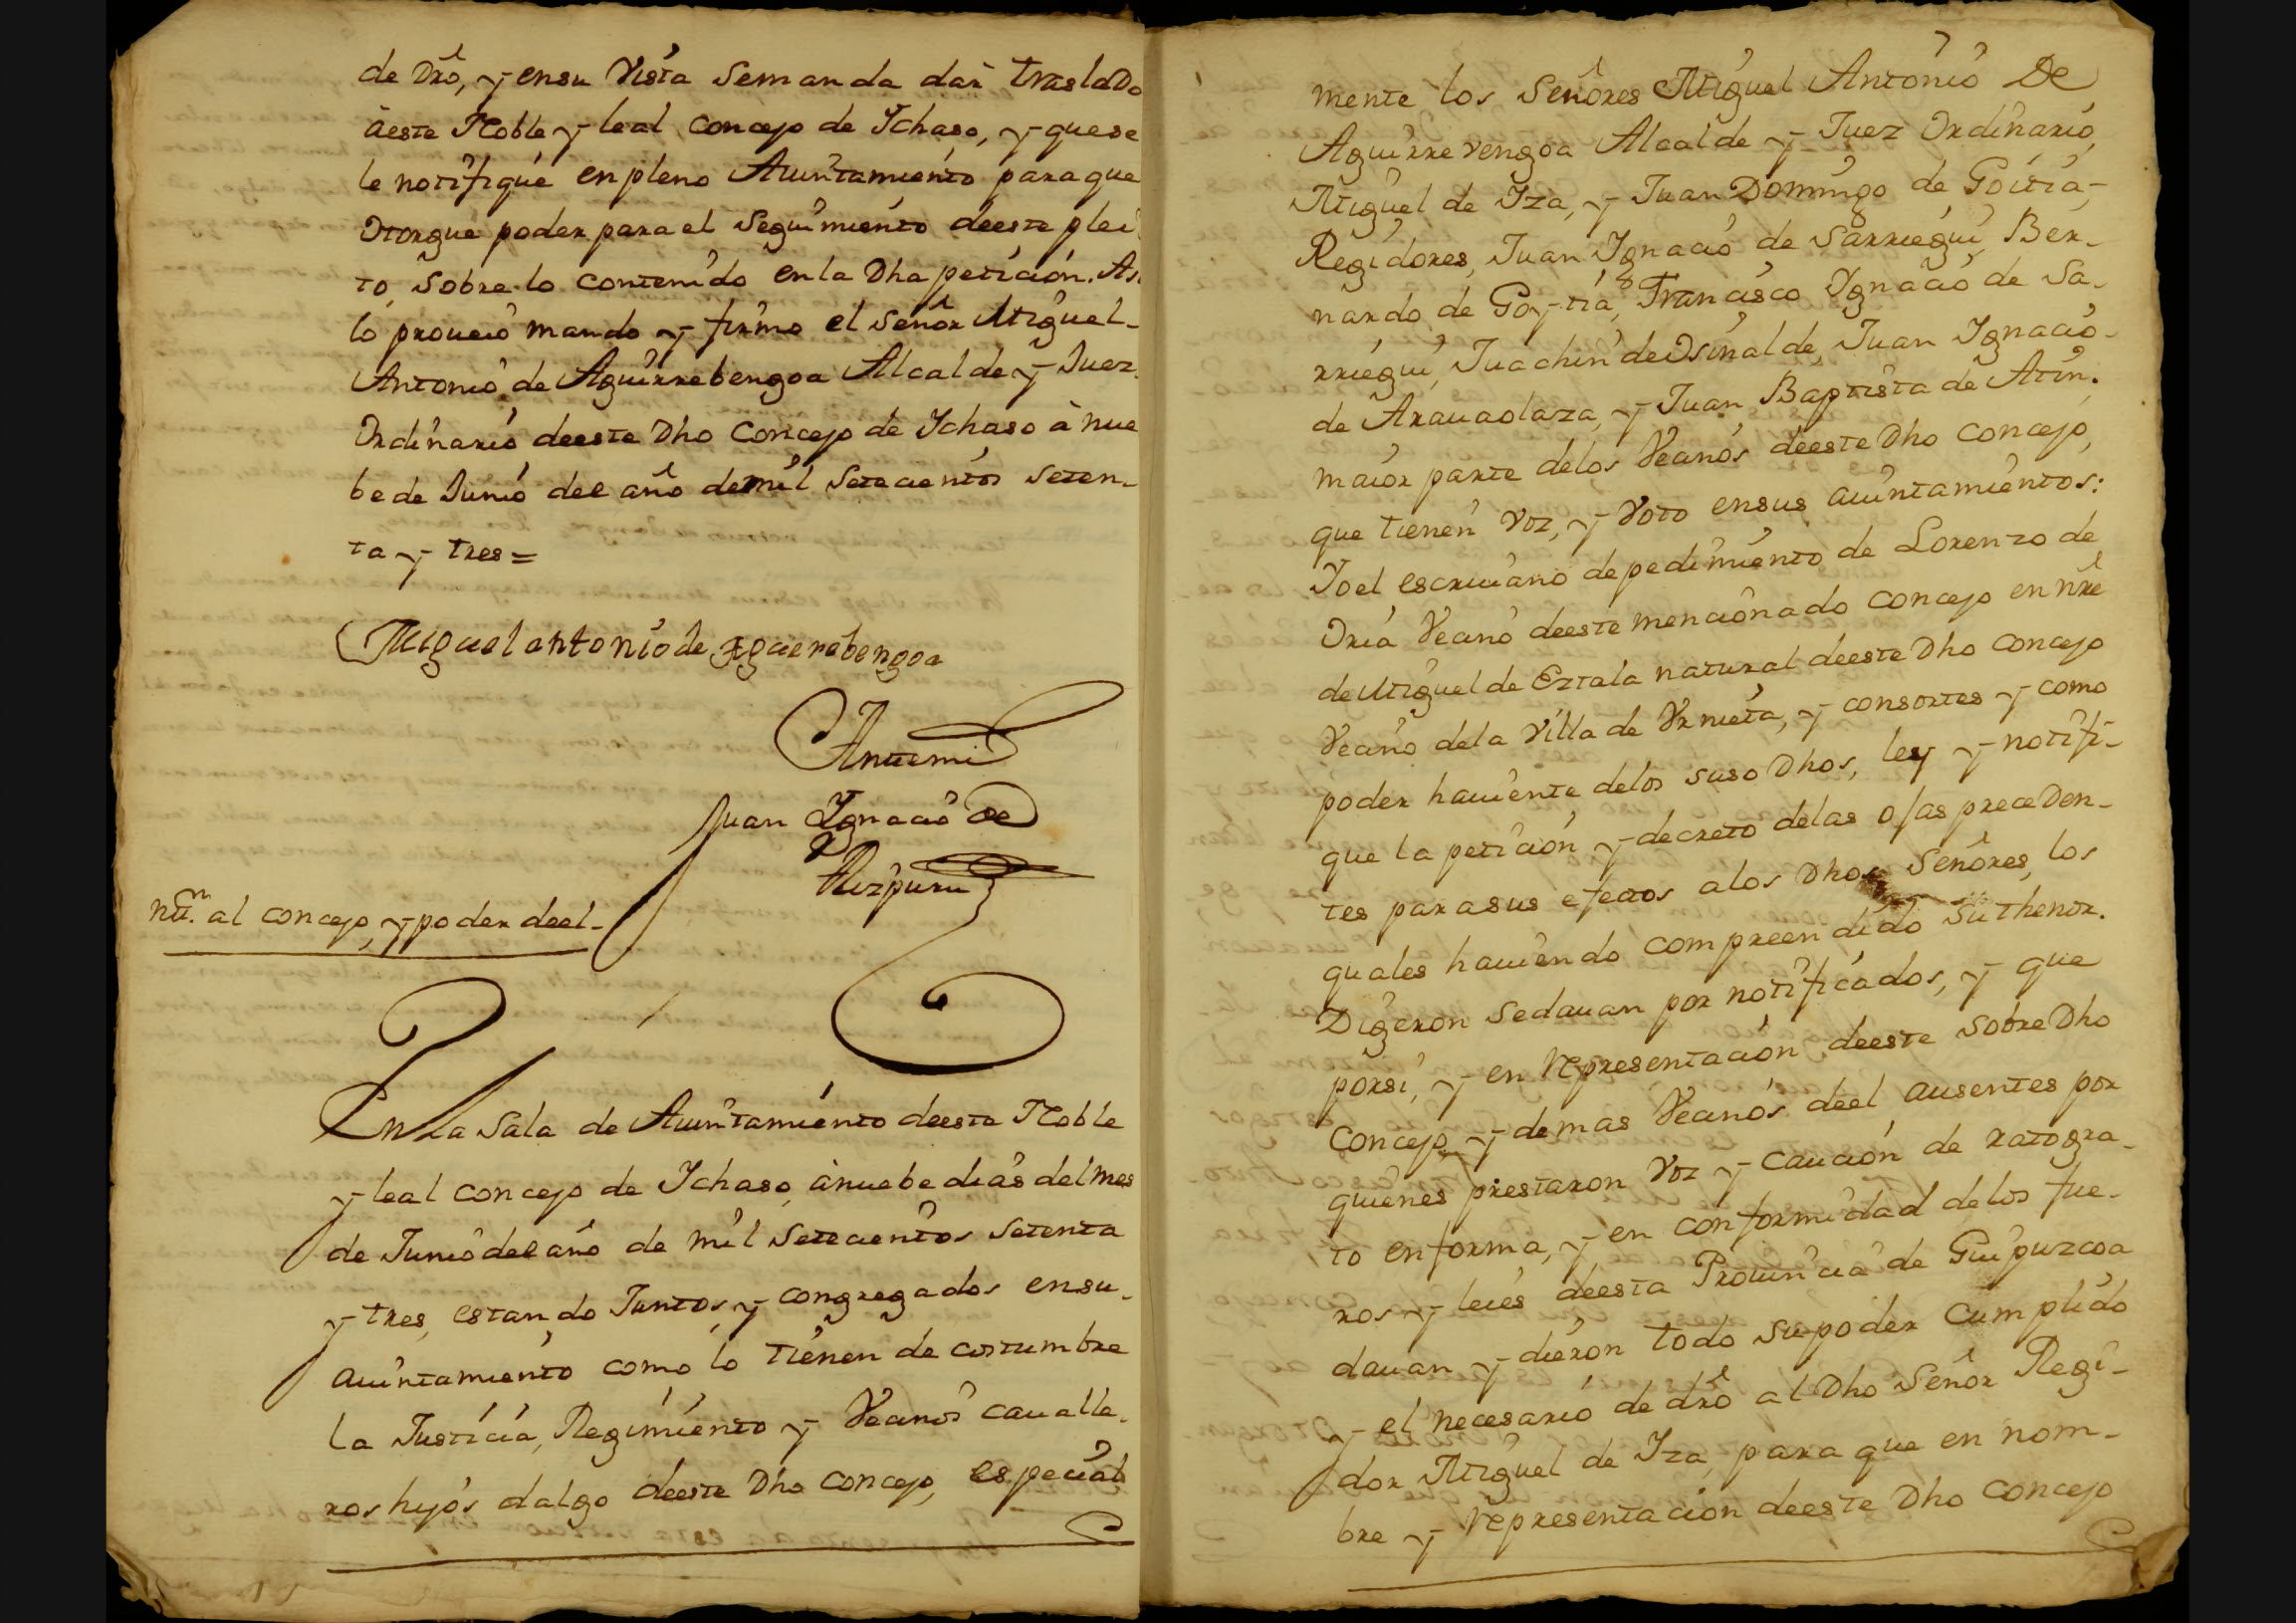 de Dr̃o, y ensu Vista Semanda dar traslado
àeste Noble y leal Concejo de Ychaso, y quese
le notifiqué en pleno Auintamiento para que
Otorgue poder para el Seguimiento deeste plei
to, sobre lo contenido en la Dha petición. Asi
lo proueió mando y firmo el Señor Miguel-
Antonio de Aguirrebengoa Alcalde y Juez
Ordinario deeste Dho Concejo de Ychaso à nue
be de Junio del año demil Setecientos Seten-
ta y tres =
Miguel antonio de Aguerebengoa
Antemi
Juan Ygnacio de
Aizpuru
nn. al concejo, y poder deel-
En La Sala de Auintamiento deesta Noble
y leal Concejo de Ychaso ànuebe dias del mes
de Junio del año de mil Setecientos Setenta
y tres, estando Juntos, y congregados ensu-
auintamiento como lo tienen de costumbre
la Justicia, Regimiento y Vecinos caualle-
ros hijos dalgo deeste Dho Concejo, especial
mente los Señores Miguel Antonio De
Aguirrevengoa Alcalde y Juez Ordinario,
Miguel de Yza, y Juan Domingo de Goitia,-
Regidores, Juan Ygnacio de Sarriegui, Ber-
nardo de Goytia, Francisco Ygnacio de Sa-
rriegui, Juachin de Osinalde, Juan Ygnacio-
de Arauaolaza, y Juan Baptista de Atin.
maior parte delos Vecinos deeste Dho Concejo,
que tienen voz, y Voto ensus auintamientos:
Yo el escriuano depedimiento de Lorenzo de
Oria Vecino deeste mencionado concejo en nr̃e
de Miguel de Eztala natural deeste Dho Concejo
Vecino dela Villa de Vrnieta, y consortes y como
poder hauiente delos suso Dhos, ley y notifi-
que la petición y decreto delas ojas preceden-
tes parasus efectos alos Dhos Señores, los
quales hauiendo compreendido Suthenor.
Digeron sedauan por notificados, y que
porsi, y en representación deeste sobre Dho
Concejo y demas Vecinos deel ausentes por
quienes prestaron Voz y caución de ratogra-
to enforma, y en conformidad delos fue-
ros y leies deesta Prouincia de Guipuzcoa
dauan y dieron todo su poder Cumplido
y el necesario de dr̃o al Dho Señor Regi-
dor Miguel de Yza, para que en nom-
bre y representación deeste Dho Concejo